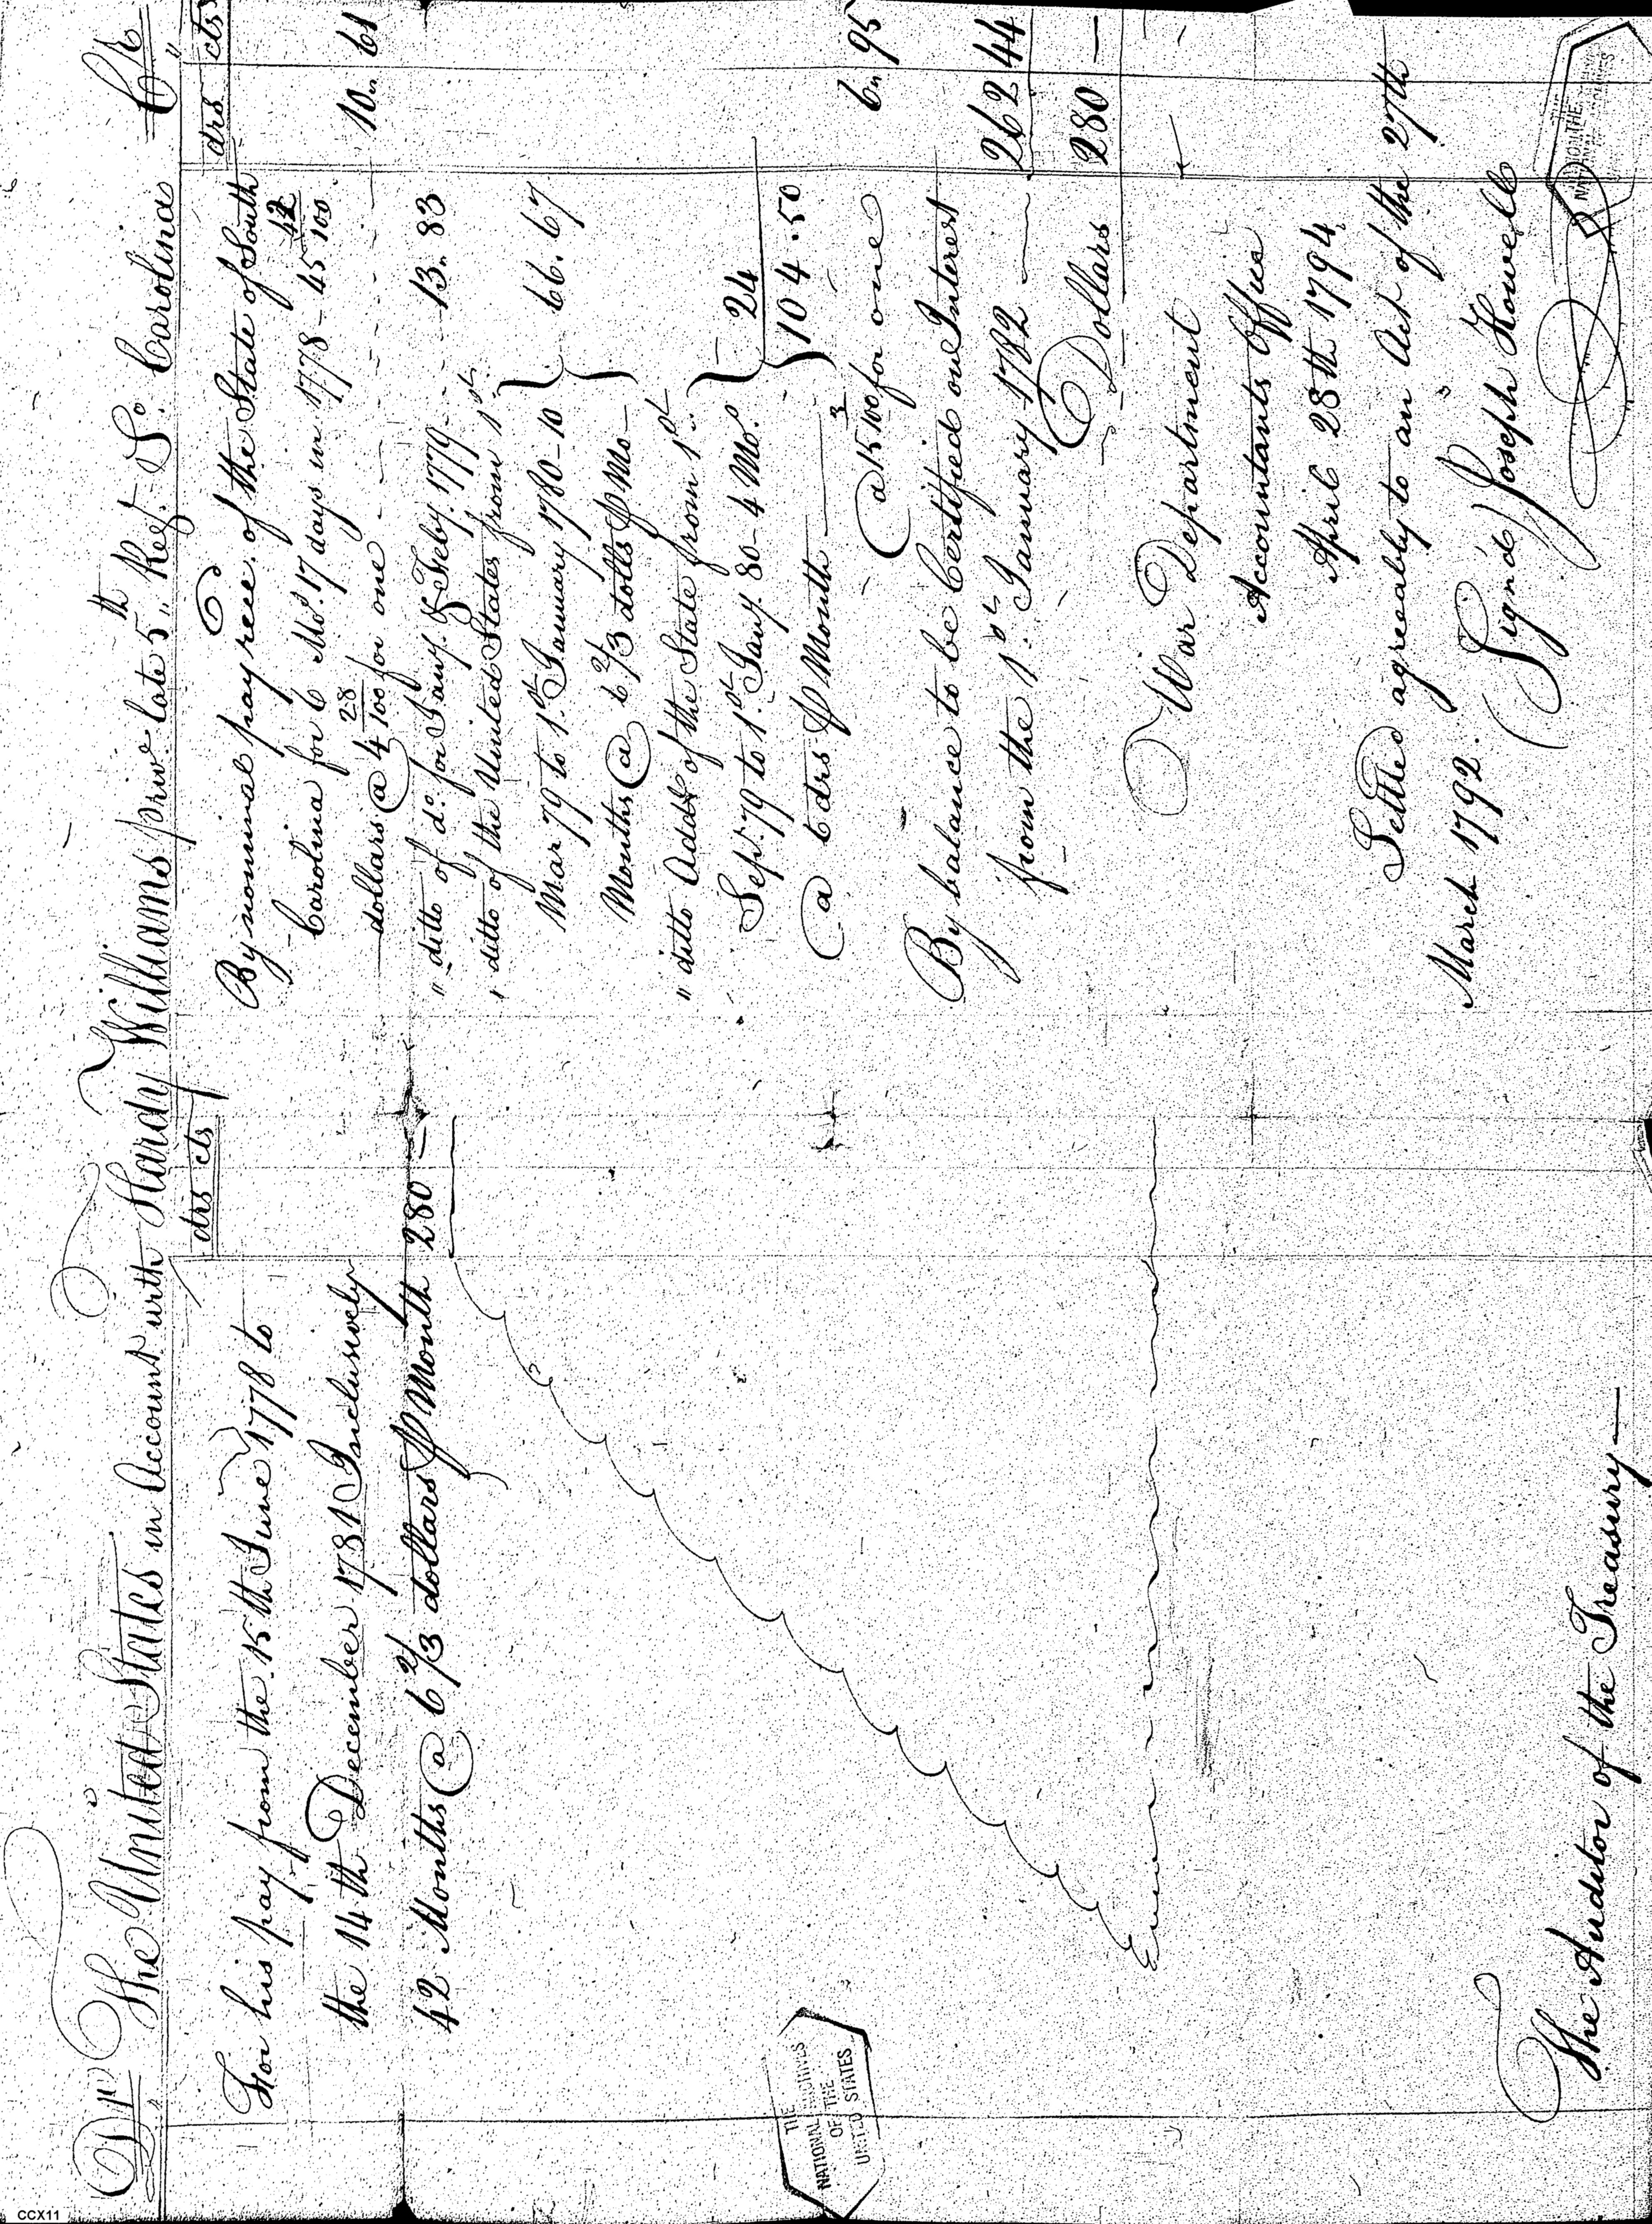 Dr. The United States in Account with Hardy Williams priv.e late 5th Reg.t So. Carolina Cr.
drs cts
For his pay from the 15th June 1778 to
the 14th December 1781 Inclusively
42 Months @ 6 2/3 dollars ⅌ Month 280 —
The Auditor of the Treasury —
drs cts
By nominal pay rece.d of the State of South
Carolina for 6 Mo.s 17 days in 1778 - 45 42/100
dollars @ 4 28/100 for one - - - - 10 „ 61
„ ditto of do. for Jany. & Feby. 1779 - - - 13 „ 83
„ ditto of the United States from 1st
Mar 79 to 1.st January 1780 - 10 } 66 . 67
Months @ 6 2/3 dolls ⅌ Mo —
„ ditto Add.l of the State from 1st
Sep.t 79 to 1.st Jany. 80 - 4 Mo.s } 24
@ 6 drs ⅌ Month — 104 . 50
@ 15 3/100 for one 6 „ 95
By balance to be Certified on Interest
from the 1.st January 1782 — 262 44
Dollars 280 —
War Department
Accountants Office
April 28th 1794
Settled agreeably to an Act of the 27th
March 1792.
Signd/ Joseph Howell
THE
NATIONAL ARCHIVES
OF THE
UNITED STATES
CCX11